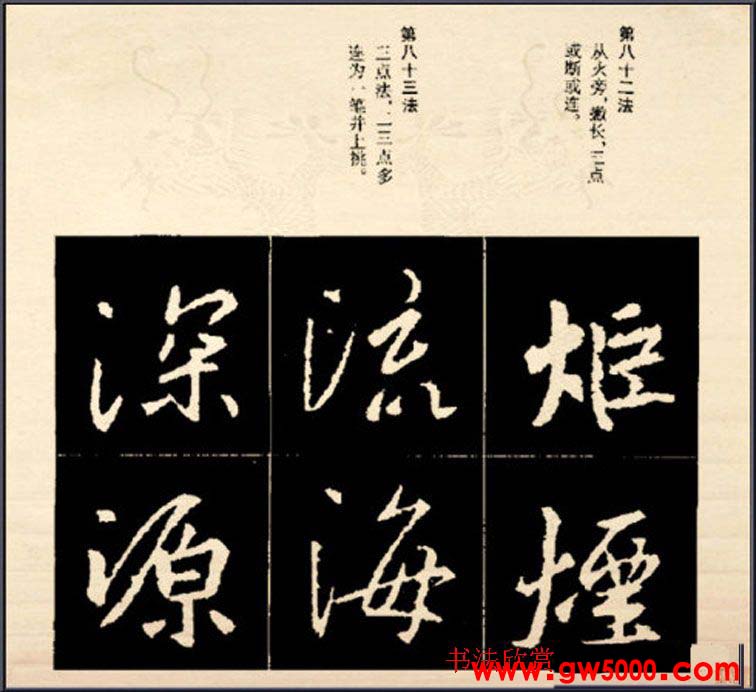 第八十二法
从火旁，撇长，三点
或断或连。
第八十三法
三点法，二三点多
连为一笔并上挑。
炬煙
流海
深源
书法欣赏
www.gw5000.com